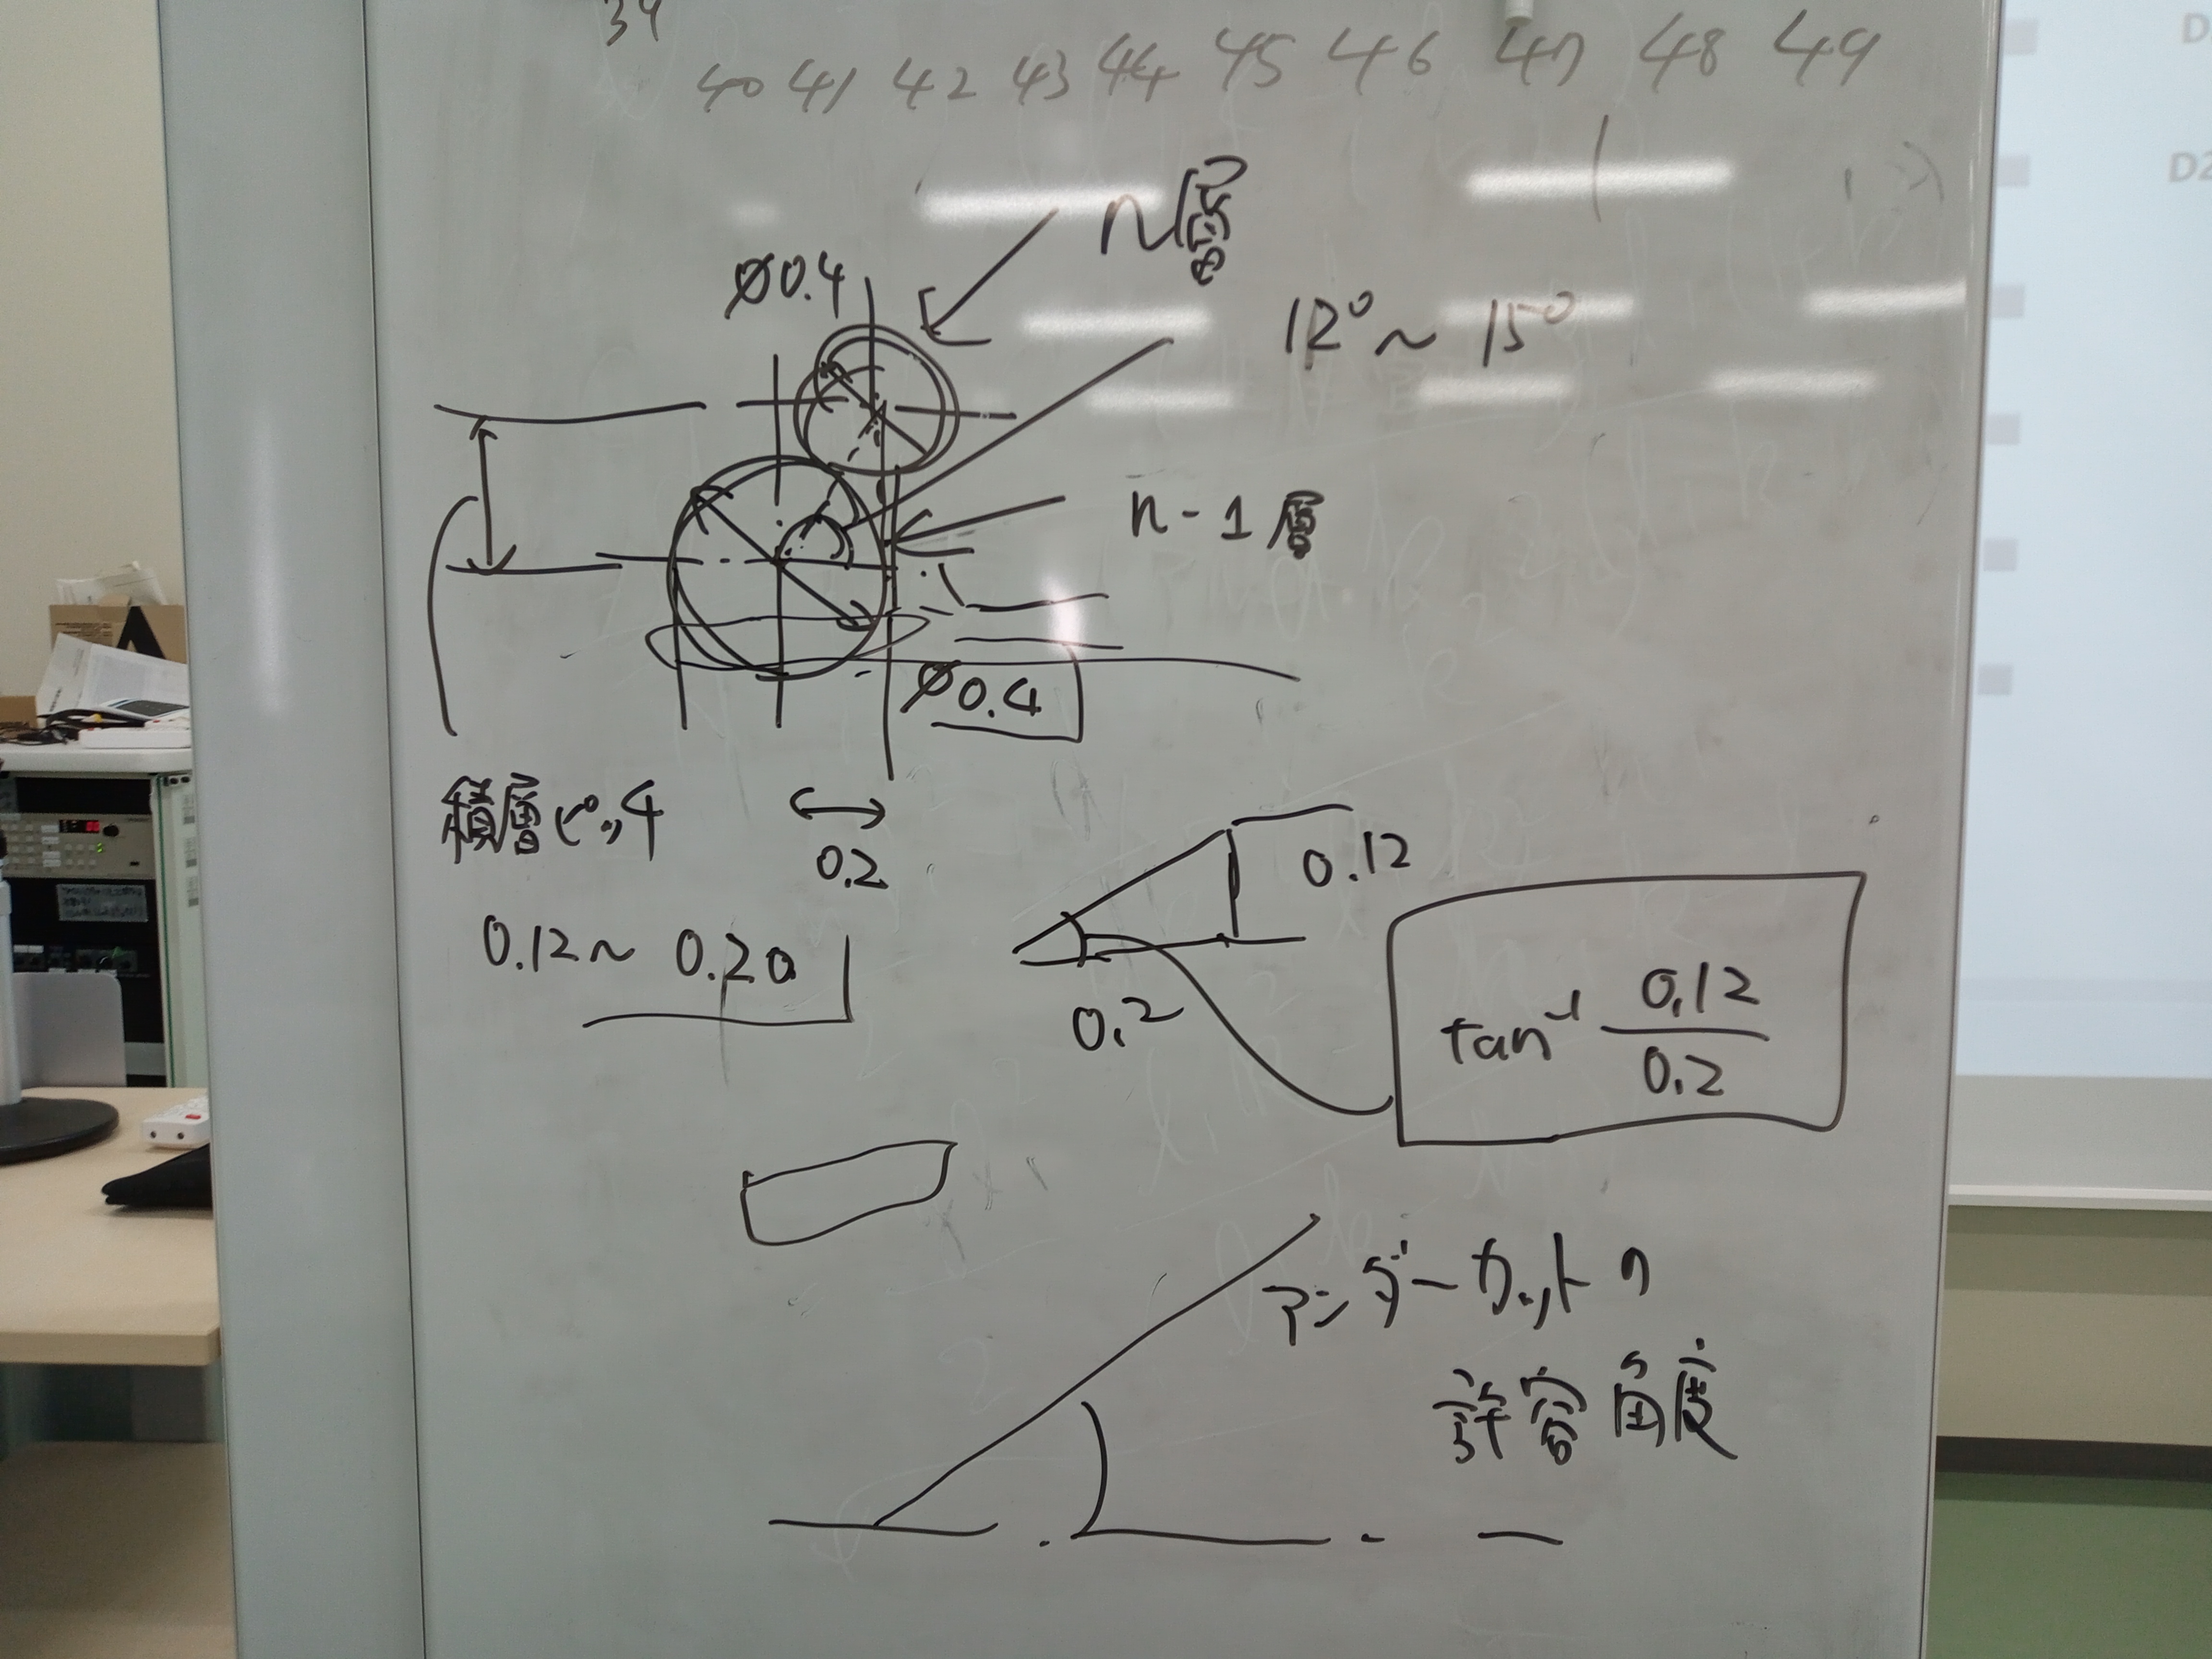 39
40 41 42 43 44 45 46 47 48 49
n層
ø0.4
12° ~ 15°
n-1層
ø0.4
積層ピッチ
0.2
0.12 ~ 0.20
0.12
0.2
tan⁻¹ 0.12
0.2
アンダーカットの
許容角度
D
D2